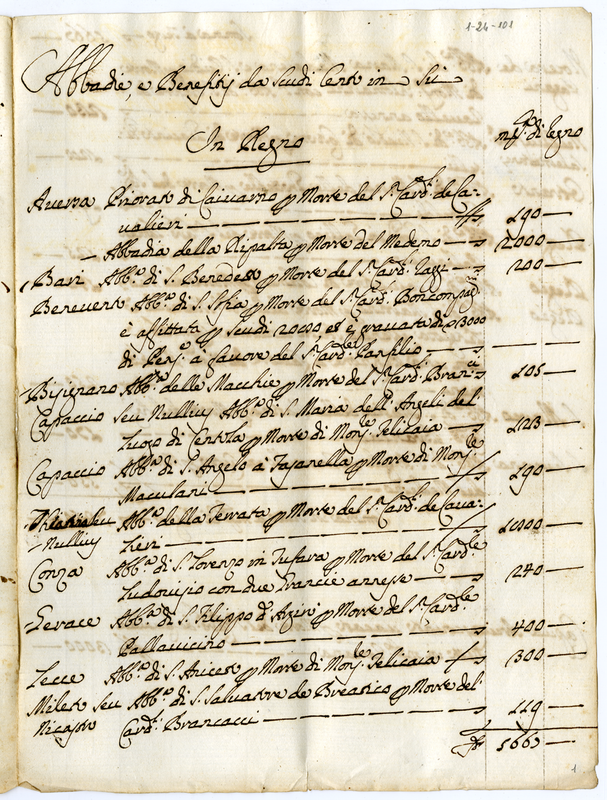 1-24-101
Abbadie, e Benefitij da scudi Cento in Sù
In Regno
mta. di Regno
Aversa Priorato di Caivano p Morte del Sr. Card. de Ca:
valieri 190
Abbadia della Ripalta p Morte del Medemo 2000
Bari Abba. di S. Benedetto p Morte del Sr. Card. 200
Benevento Abba. di S. Sofia p Morte del Sr. Card. Boncompag.
è affittata p scudi 20000 et è gravata di 3000
di Pens. à favore del Sr. Card.le Panfilio
Bisignano Abba. delle Macchie p Morte del Sr. Card. Bran. 105
Capaccio seu Nullius Abba. di S. Maria dell' Angeli del
Luogo di Centola p Morte di Monsr. Telicaia 123
Capaccio Abba. di S. Angelo à Fasanella p Morte di Monsr.
Maculani 190
seu Abba. della Ferrata p Morte del Sr. Card. de Cava:
Nullius lieri 1000
Conza Abba. di S. Lorenzo in Tufara p Morte del Sr. Card.le
Ludovisio con due Grancie annesse 240
Gerace Abba. di S. Filippo d' Argirò p Morte del Sr. Card.le
Pallavicino 400
Lecce Abba. di S. Aniceto p Morte di Monsr. Telicaia 300
Mileto seu Abba. di S. Salvatore de Breatico p Morte del
Nicastro Card. Brancacci 119
5663
1